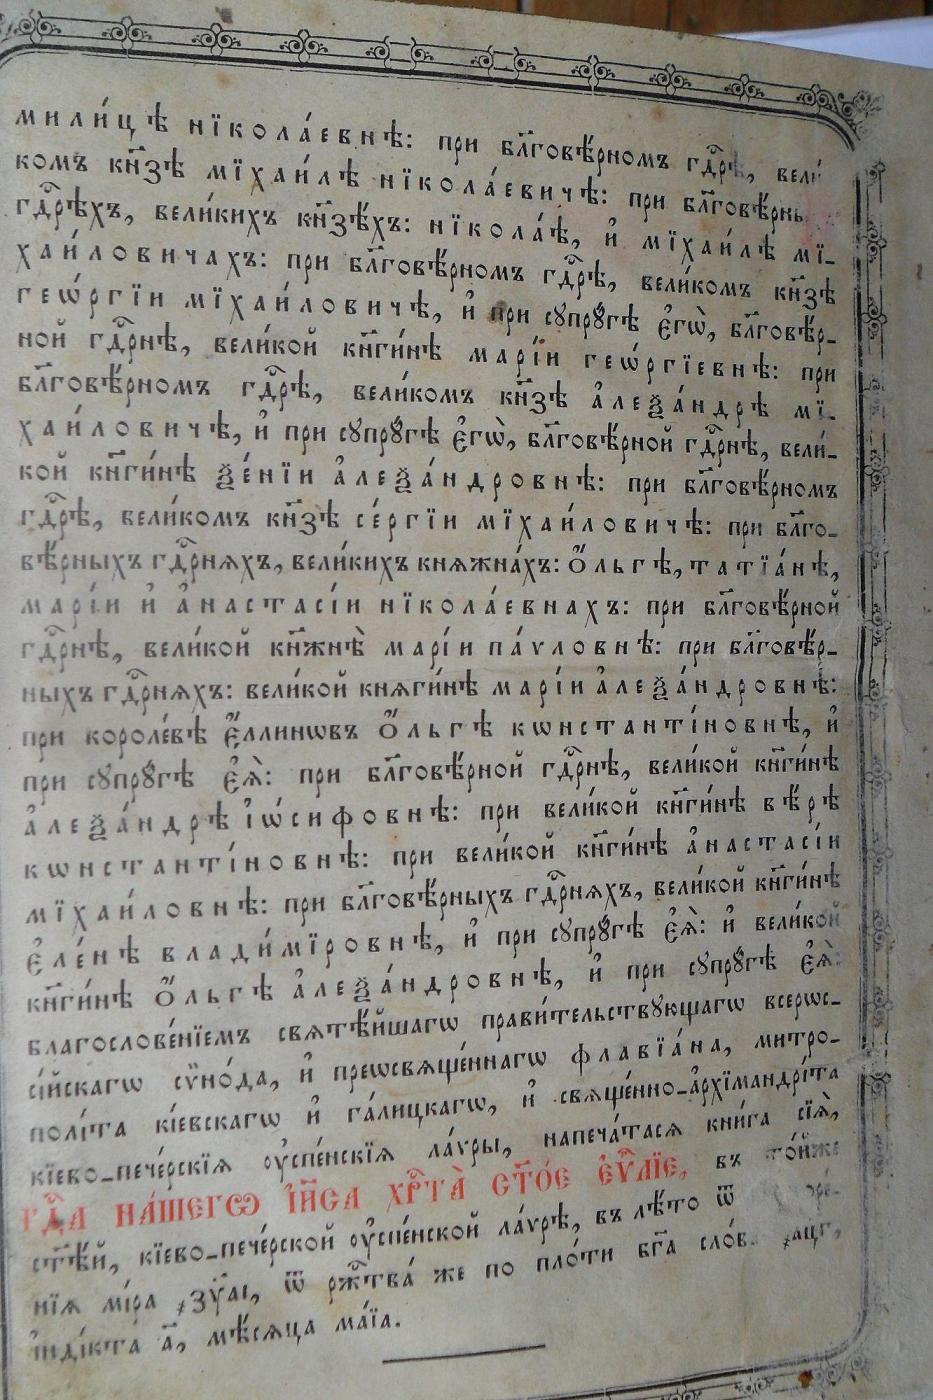 мили́цѣ нїкола́евнѣ: при бл҃говѣ́рномъ гдⷭ҇рѣ,
комъ кн҃зѣ мїхаи́лѣ нїкола́евичѣ: при
гдⷭ҇рѣхъ, вели́кихъ кн҃зѣхъ: нїкола́ѣ, и҆ мїхаи́лѣ мї-
хаи́ловичахъ: при бл҃говѣ́рномъ гдⷭ҇рѣ, вели́комъ кн҃зѣ
геѡ́ргїи мїхаи́ловичѣ, и҆ при сꙋпрꙋ́гѣ є҆гѡ̀, бл҃говѣ́р-
ной гдⷭ҇рнѣ, вели́кой кн҃ги́нѣ марі́и геѡ́ргїевнѣ: при
бл҃говѣ́рномъ гдⷭ҇рѣ, вели́комъ кн҃зѣ а҆леѯа́ндрѣ мї-
хаи́ловичѣ, и҆ при сꙋпрꙋ́гѣ є҆гѡ̀, бл҃говѣ́рной гдⷭ҇рнѣ, вели́-
кой кн҃ги́нѣ ѯе́нїи а҆леѯа́ндровнѣ: при бл҃говѣ́рномъ
гдⷭ҇рѣ, вели́комъ кн҃зѣ се́ргїи мїхаи́ловичѣ: при бл҃го-
вѣ́рныхъ гдⷭ҇рнѧхъ, вели́кихъ княжна́хъ: Ѻ҆́льгѣ, татїа́нѣ,
марі́и и҆ а҆настасі́и нїкола́евнахъ: при бл҃говѣ́рной
гдⷭ҇рнѣ, вели́кой кн҃жнѣ̀ марі́и па́ѵловнѣ: при бл҃говѣ́р-
ныхъ гдⷭ҇рнѧхъ: вели́кой княги́нѣ марі́и а҆леѯа́ндровнѣ:
при короле́вѣ є҆́ллинѡвъ Ѻ҆́льгѣ кѡнстанті́новнѣ, и҆
при сꙋпрꙋ́гѣ є҆ѧ̀: при бл҃говѣ́рной гдⷭ҇рнѣ, вели́кой кн҃ги́нѣ
а҆леѯа́ндрѣ і҆ѡ́сифовнѣ: при вели́кой кн҃ги́нѣ вѣ́рѣ
кѡнстанті́новнѣ: при вели́кой кн҃ги́нѣ а҆настасі́и
мїхаи́ловнѣ: при бл҃говѣ́рныхъ гдⷭ҇рнѧхъ, вели́кой кн҃ги́нѣ
є҆ле́нѣ влади́мїровнѣ, и҆ при сꙋпрꙋ́гѣ є҆ѧ̀: и҆ вели́кой
кн҃ги́нѣ Ѻ҆́льгѣ а҆леѯа́ндровнѣ, и҆ при сꙋпрꙋ́гѣ є҆ѧ̀:
благослове́нїемъ свѧтѣ́йшагѡ прави́тельствꙋющагѡ всерѡс-
сі́йскагѡ сѷно́да, и҆ преѡсвѧще́ннагѡ флавїа́на, митро-
полі́та кі́евскагѡ и҆ га́лицкагѡ, и҆ свѧще́нно-а҆рхїмандрі́та
кїево-пече́рскїѧ ᲂу҆спе́нскїѧ ла́ѵры, напеча́тасѧ кни́га сїѧ̀,
гдⷭ҇а на́шегѡ і҆и҃са хрⷭ҇та̀ ст҃о́е є҆ѵⷢ҇лїе, въ то́йже
ст҃ѣ́й, кїево-пече́рской ᲂу҆спе́нской ла́ѵрѣ, въ лѣ́то ѿ
нїѧ мі́ра ҂зѵ҃аі, ѿ ржⷭ҇тва́ же по пло́ти бг҃а
і҆нді́кта а҃, мѣ́сѧца ма́їа.